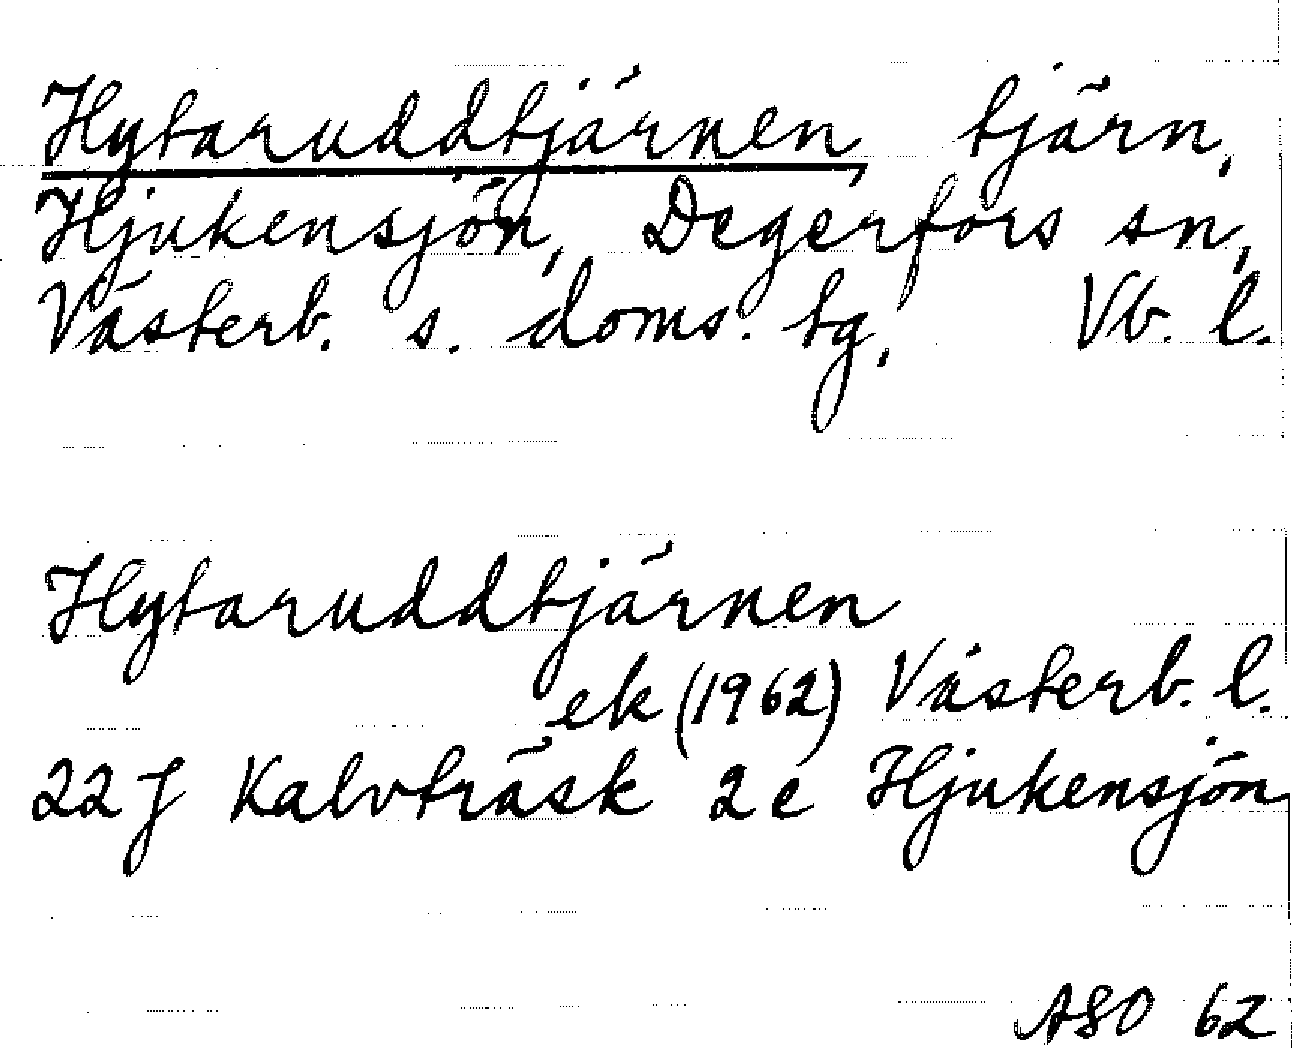 Hytaruddtjärnen, tjärn,
Hjukensjön, Degerfors sn,
Västerb. s. doms. tg, Vb. l.
Hytaruddtjärnen
ek (1962) Västerb. l.
22 J Kalvträsk 2 e Hjukensjön
ASO 62